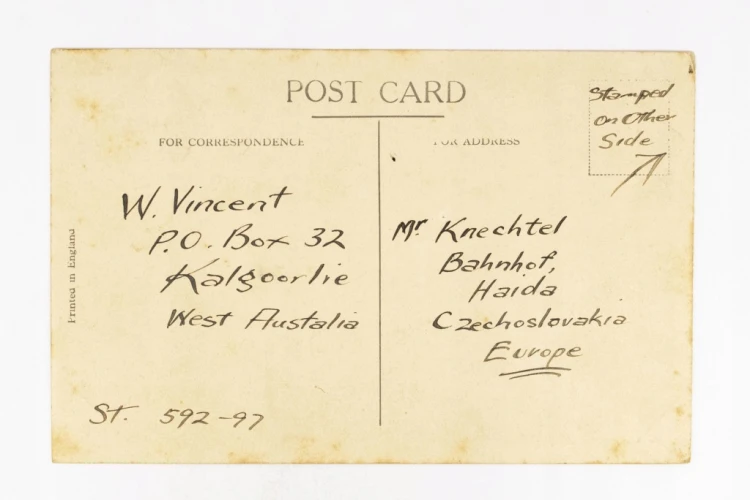 POST CARD
FOR CORRESPONDENCE
FOR ADDRESS
Stamped
on Other
Side
W. Vincent
P.O. Box 32
Kalgoorlie
West Austalia
Mr Knechtel
Bahnhof,
Haida
Czechoslovakia
Europe
St. 592-97
Printed in England